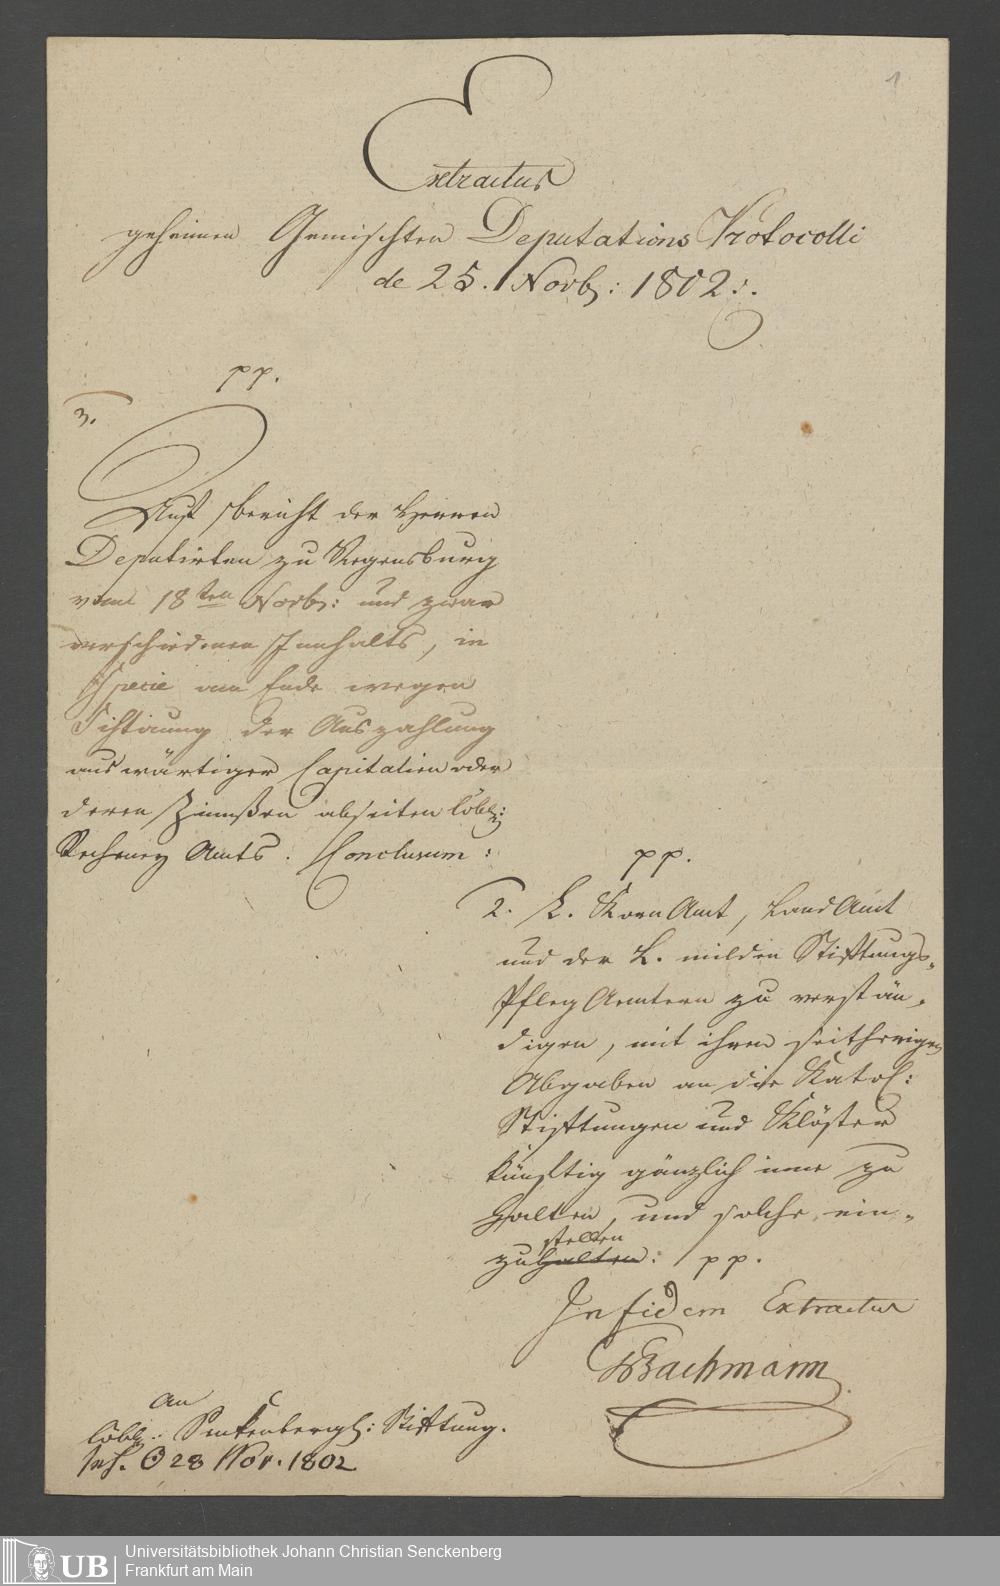 1
Extractus
geheimen Gemischten Deputations Protocolli
de 25. Novb: 1802.
pp.
3.
Auf bericht der Herren
Deputirten zu Regensburg
vom 18ten Novb: und zwar
verschiedenen Innhalts, in
Specie am Ende wegen
Sistirung der Auszahlung
auswärtiger Capitalien oder
deren Zinnßen abseiten löbl:
Rechney Amts. Conclusum:
pp.
2. L. Korn Amt, Land Amt
und der L. milden Stiftungs-
Pfleg Aemtern zu verstän-
digen, mit ihren seitherigen
Abgaben an die Kathol:
Stiftungen und Klöster
künftig gänzlich inne zu
halten, und solche ein-
stellen
zuhalten: pp.
In fidem Extractus
Bachmann
An
löbl: Senkenbergl: Stiftung.
28 Nov. 1802
UB Universitätsbibliothek Johann Christian Senckenberg
Frankfurt am Main